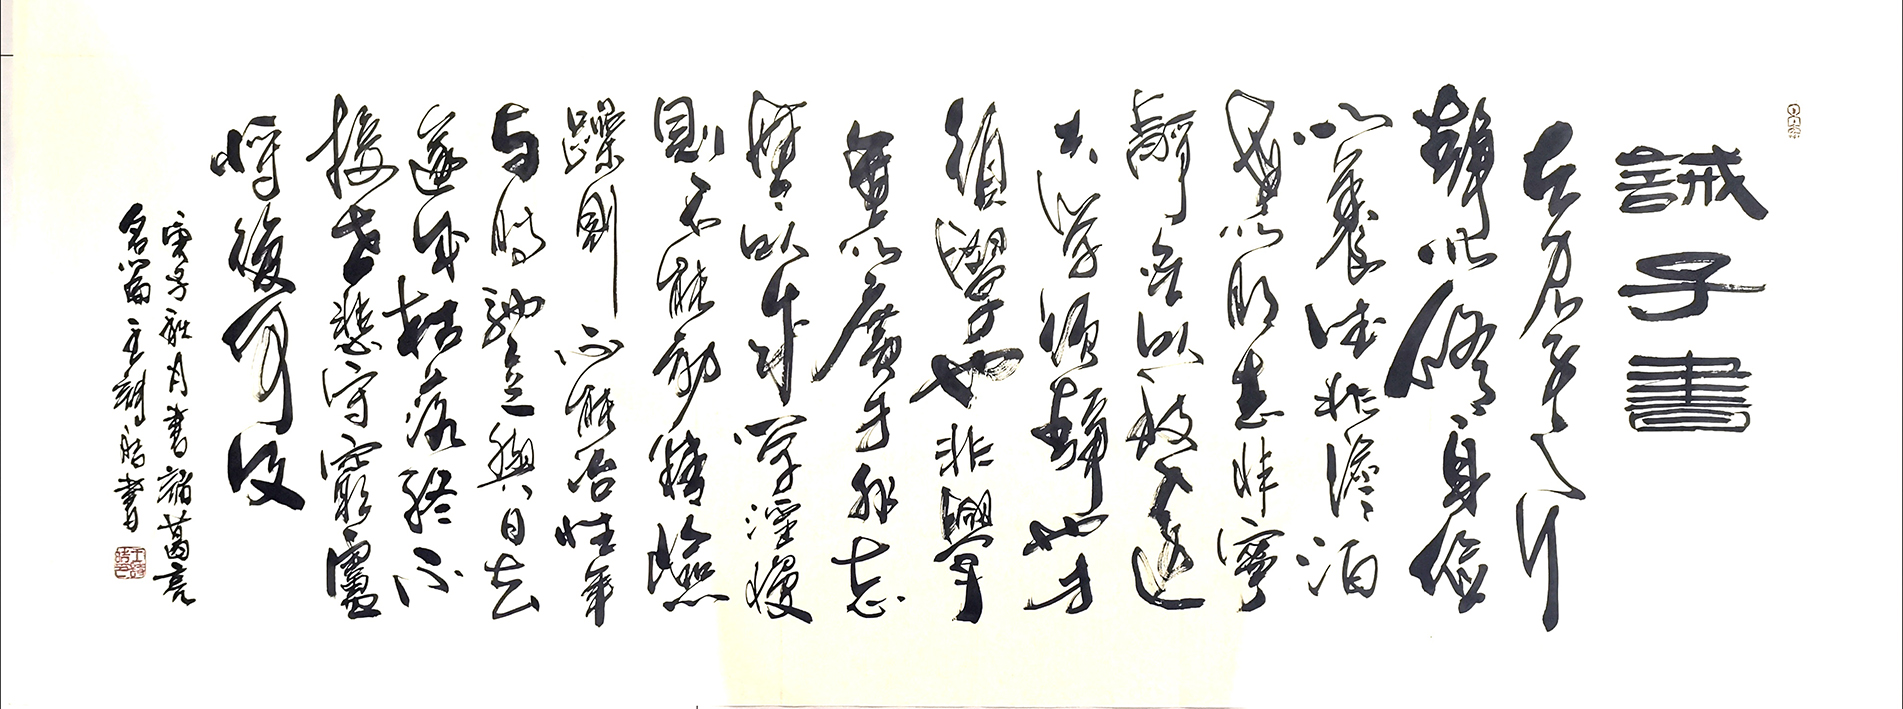 誡子書
夫君子之行
靜以修身儉
以養德非澹泊
無以明志非寧
靜無以致遠
夫學須靜也才
須學也非學
無以廣才非志
無以成學淫慢
則不能勵精險
躁則不能冶性年
与時馳意與日去
遂成枯落終不
接世悲守窮廬
將復何及
庚子月書諸葛亮
名篇 書